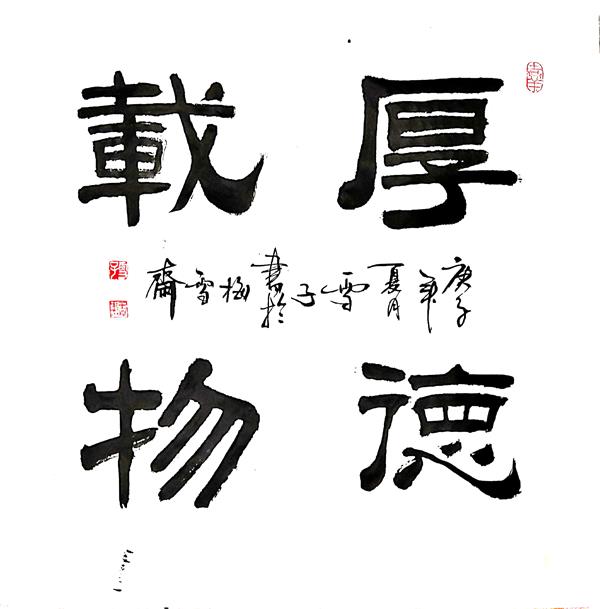 厚德
載物
庚子年夏月雪子書於梅雪齋